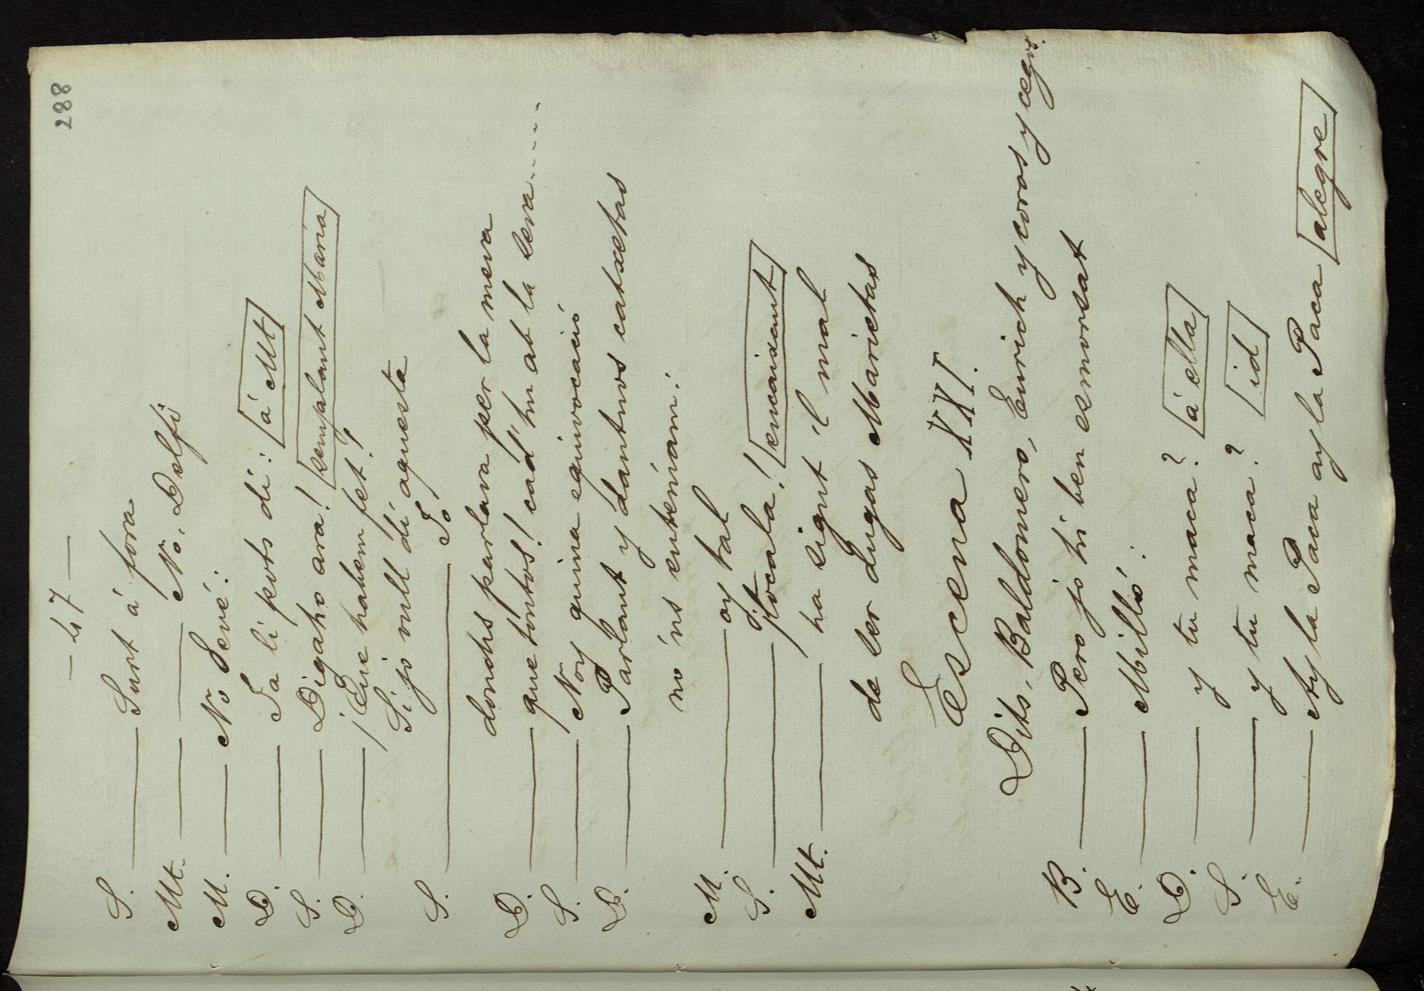 288
— 47 —
S. — Surt á fora
Mt. — No, Delfí
M. — No Sevé!
D. — Ja li pots di! [á Mt]
S. — Digaho ara! [senyalant Maria]
D. — ¡Que habem fet!
Si jo vull dí aquesta
S. — Jo
donchs parlava per la meva
D. — que tontos! cad'hu at la seva....
S. — Noy quina equivocació
D. — Parlant y dantnos catxetas
no'ns enteniam!
M. — ay tal
S. — tocala! [encaixant]
Mt. — ha sigut 'l mal
de ser dugas Marietas
Escena XXI.
Dits, Baldomero, Enrich y coros y cego.
B. — Pero jo hi ben esmorsat
E. — Milló!
D. — y tu maca? [á ella]
S. — y tu maca? [id]
E. — Ay la Paca ay la Paca [alegre]